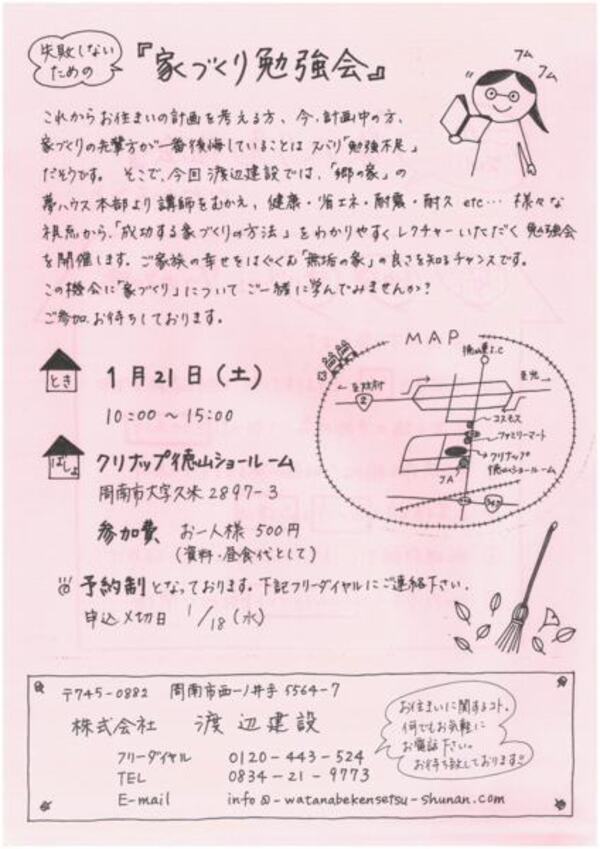 失敗しない
ための
『家づくり勉強会』
フム
フム
これからお住まいの計画を考える方、今、計画中の方、
家づくりの先輩方が一番後悔していることは ズバリ「勉強不足」
だそうです。 そこで、今回渡辺建設では、「郷の家」の
夢ハウス本部より講師をむかえ、健康・省エネ・耐震・耐久 etc… 様々な
視点から、「成功する家づくりの方法」をわかりやすくレクチャーいただく勉強会
を開催します。ご家族の幸せをはぐくむ「無垢の家」の良さを知るチャンスです。
この機会に「家づくり」についてご一緒に学んでみませんか?
ご参加、お待ちしております。
MAP
徳山東I.C
←至防府
2
至岩→
コスモス
ファミリーマート
クリナップ
徳山ショールーム
JA
とき
1月21日(土)
10:00〜15:00
ばしょ
クリナップ徳山ショールーム
周南市大字久米2897-3
参加費 お一人様500円
(資料・昼食代として)
予約制となっております。下記フリーダイヤルにご連絡下さい。
申込〆切日 1/18(水)
〒745-0882 周南市西一ノ井手5564-7
株式会社 渡辺建設
フリーダイヤル 0120-443-524
TEL 0834-21-9773
E-mail info@-watanabekensetsu-shunan.com
お住まいに関するコト。
何でもお気軽に
お電話下さい。
お待ち致しております!!